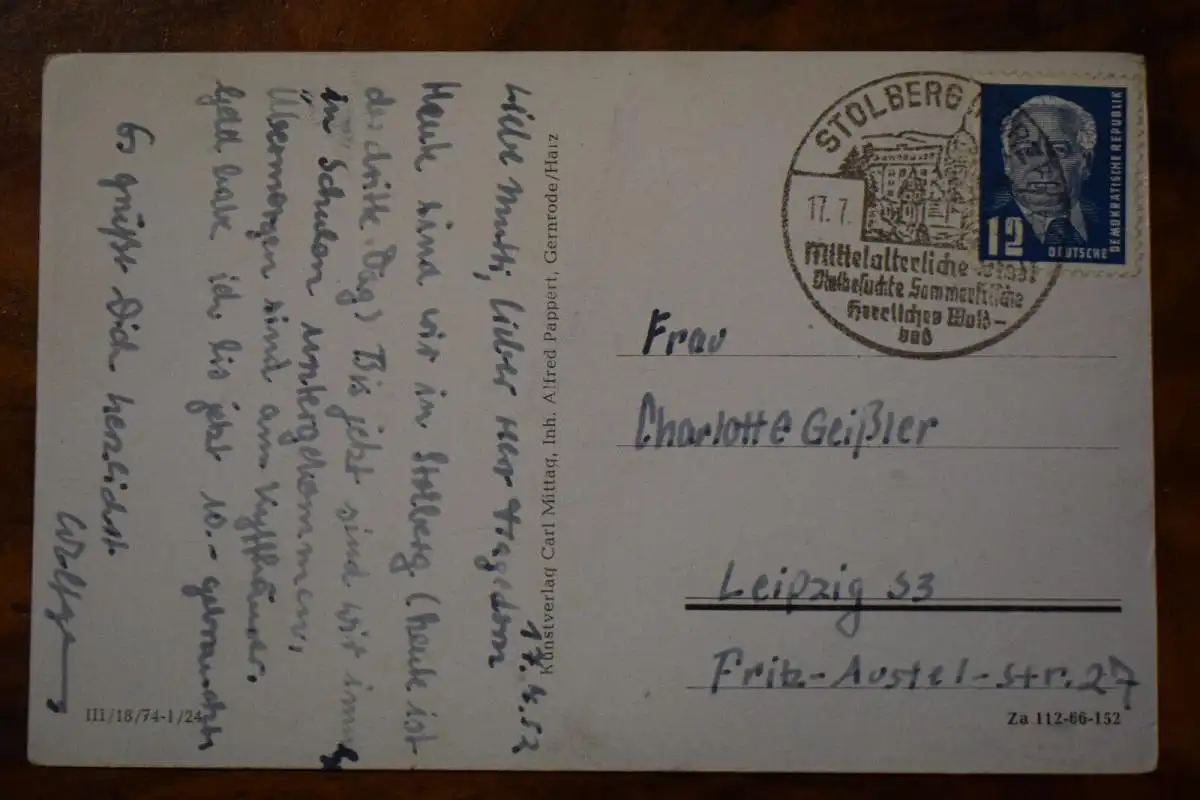 17.7.52
Liebe Mutti, lieber Herr Hagedorn
Heute sind wir in Stolberg (heute ist
der dritte Tag) Bis jetzt sind wir immer
in Schulen untergekommen,
Übermorgen sind am Kyffhäuser.
Geld habe ich bis jetzt 10.- gebraucht
Es grüßt Dich herzlichst
III/18/74-1/24
Kunstverlag Carl Mittag, Inh. Alfred Pappert, Gernrode/Harz
STOLBERG
17.7.
Mittelalterliche Stadt
Vielbesuchte Sommerfrische
Herrliches Wald-
bad
12
DEUTSCHE
DEMOKRATISCHE REPUBLIK
Frau
Charlotte Geißler
Leipzig S3
Fritz-Austel-Str. 27
Za 112-66-152